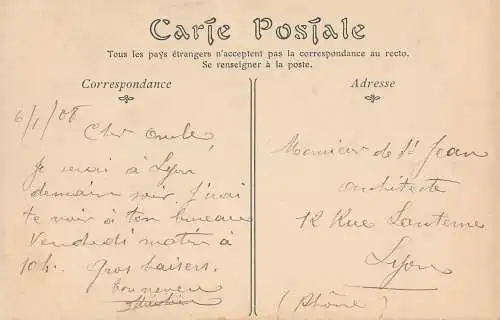 Carte Postale
Tous les pays étrangers n'acceptent pas la correspondance au recto.
Se renseigner à la poste.
Correspondance
6/1/08
Cher oncle,
Je serai à Lyon
demain soir. J'irai
te voir à ton bureau
Vendredi matin à
10h. Gros baisers.
Ton neveu
Adresse
Monsieur de St Jean
architecte
12 Rue Lanterne
Lyon
(Rhône)